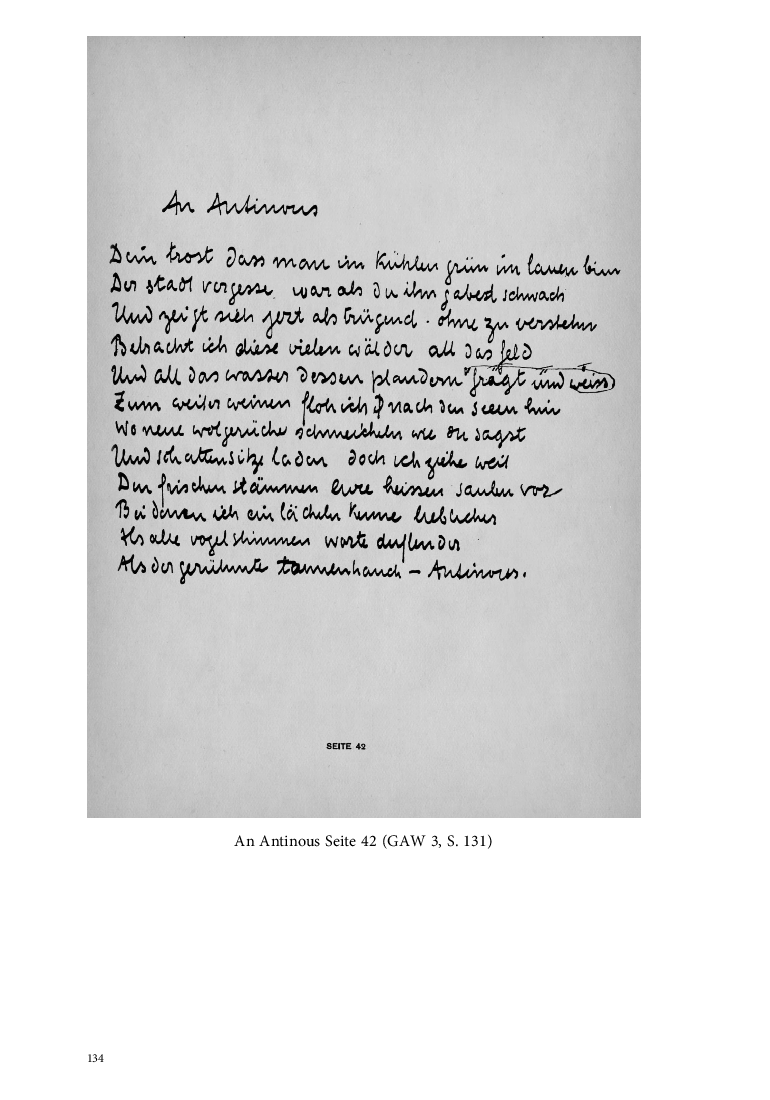 An Antinous
Dein trost dass man im kühlen grün im lauen blau
Der stadt vergesse war als du ihn gabest schwach
Und zeigt sich jezt als trügend · ohne zu verstehn
Betracht ich diese vielen wälder all das feld
Und all das wasser dessen plaudern frägt und weiss
Zum weiler weinen floh ich nach den seeen hin
Wo neue wolgerüche schmeicheln wie du sagst
Und schattensitze laden doch ich ziehe weit
Den frischen stämmen eure heissen säulen vor
Bei denen ich ein lächeln kenne lieblicher
Als alle vogelstimmen worte duftender
Als der gerühmte tannenhauch – Antinous.
SEITE 42
An Antinous Seite 42 (GAW 3, S. 131)
134